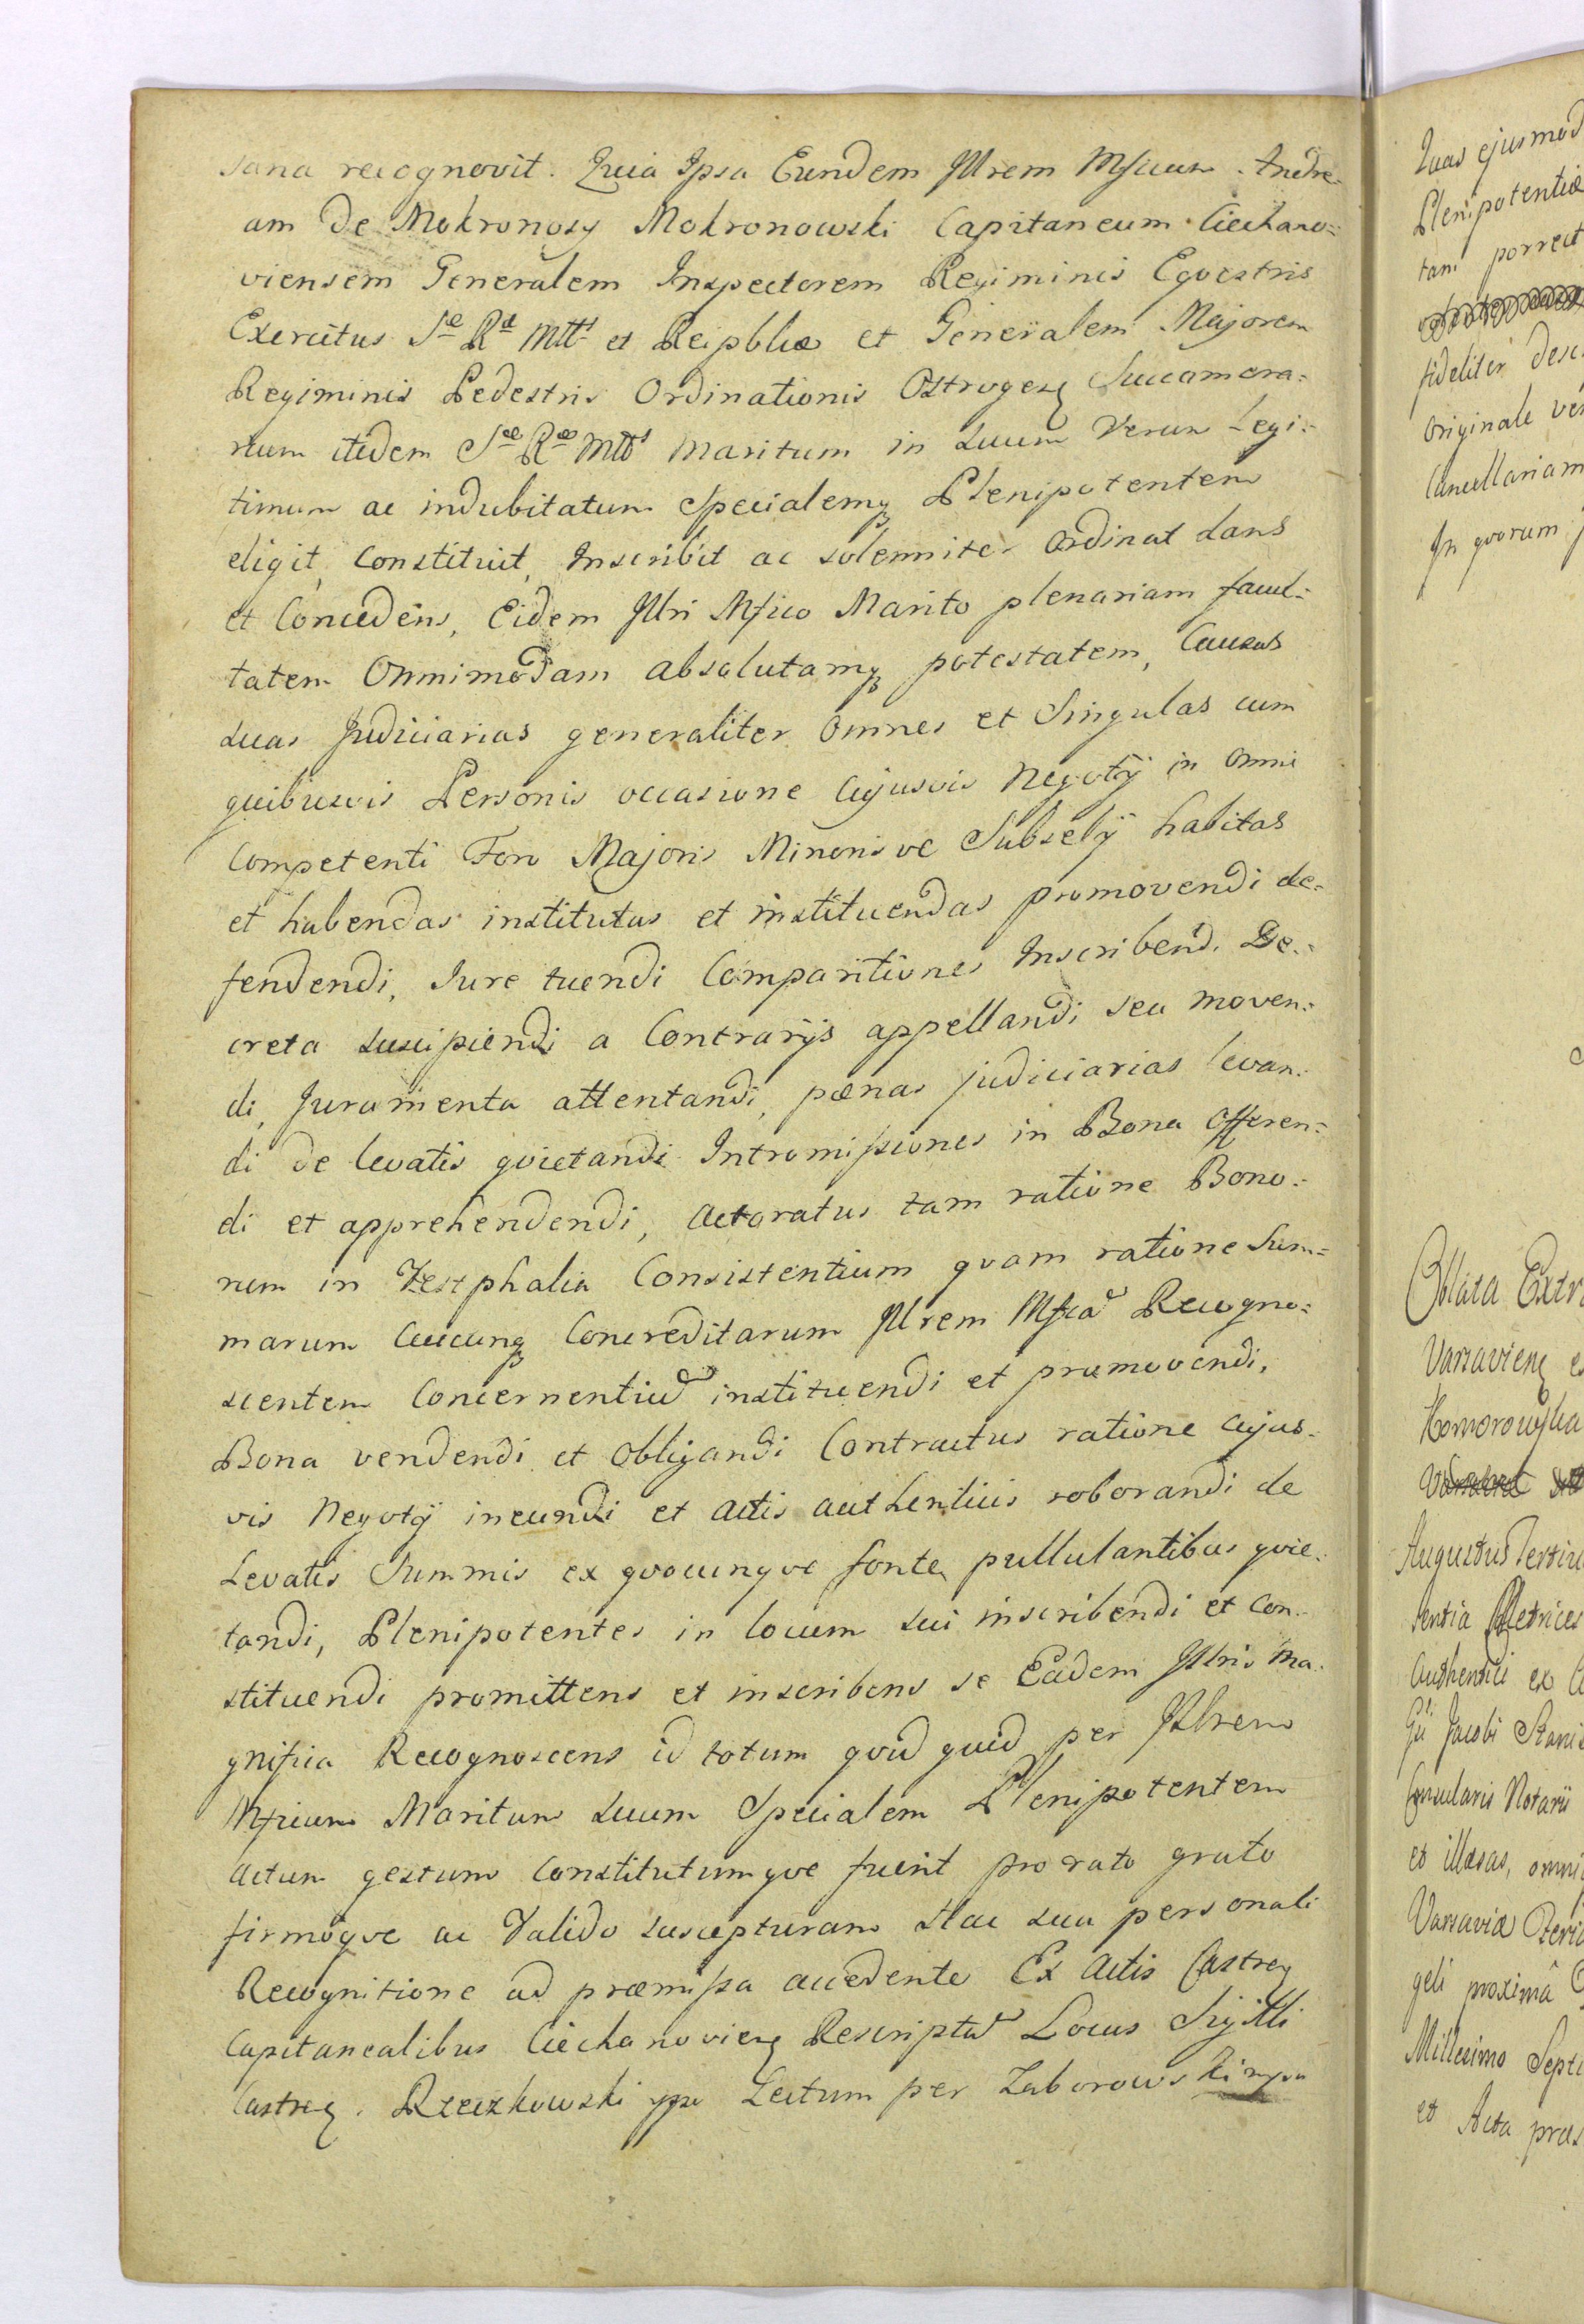 sana recognovit. Quia Ipsa Eundem Jllrem Mficum Andre=
am De Mokronosy Mokronowski Capitaneum Ciechano=
viensem Generalem Inspectorem Regiminis Eqvestris
Exercitus Sæ Ræ Mttis et Reipblicæ et Generalem Majorem
Regiminis Pedestris Ordinationis Ostrogens Succamera=
rium itidem Sæ Ræ Mttis Maritum in suum Verum Legi=
timum ac indubitatum Specialemq Plenipotentem
eligit, Constituit, Inscribit ac solenniter Ordinat dans
et Concedens, Eidem Jllri Mfico Marito plenariam facul=
tatem Omnimodam absolutamq potestatem, Causas
suas Judiciarias generaliter Omnes et Singulas cum
quibusvis Personis occasione Cujusvis Negotÿ in Omni
Competenti Foro Majoris Minorisve Subselÿ habitas
et habendas institutas et instituendas promovendi de=
fendendi, Jure tuendi Comparitiones Inscribendi De=
creta suscipiendi a Contrarÿs appellandi seu moven=
di, Juramenta attentandi, pœnas judiciarias levan=
di de levatis qvietandi Intromissiones in Bona Offeren=
di et apprehendendi, Actoratus tam ratione Bono=
rum in Vestphalia Consistentium qvam ratione Sum=
marum Cuicunq Concreditarum Jllrem Mficã Recogno=
scentem Concernentiũ instituendi et promovendi,
Bona vendendi et Obligandi Contractus ratione Cujus=
vis Negotÿ ineundi et Actis authenticis roborandi de
Levatis Summis ex qvocunqve fonte pullulantibus qvie=
tandi, Plenipotentes in locum sui inscribendi et Con=
stituendi promittens et inscribens se Eadem Jllris Ma=
gnifica Recognoscens id totum qvid quid per Jllrem
Mficum Maritum suum Specialem Plenipotentem
Actum gestum Constitutumqve fuerit pro rato grato
firmoqve ac Valido suscepturam Hac sua personali
Recognitione ad præmissa accedente Ex Actis Castren
Capitanealibus Ciechanoviens Rescriptũ Locus Sigilli
Castren. Rzeczkowski mpr Lectum per Zaborowski mpr
Quas ejusmod
Plenipotentiæ
tam porrect
fideliter desc
Originale ver
Cancellariam
In qvorum
Oblata Extr
Varsaviens
Augustus Tertiu
Authentici ex
Jacobi Stani
Consularis Notarii
et illæsas, omni
Varsaviæ Feria
geli proxima
Millesimo Septi
et Acta præs